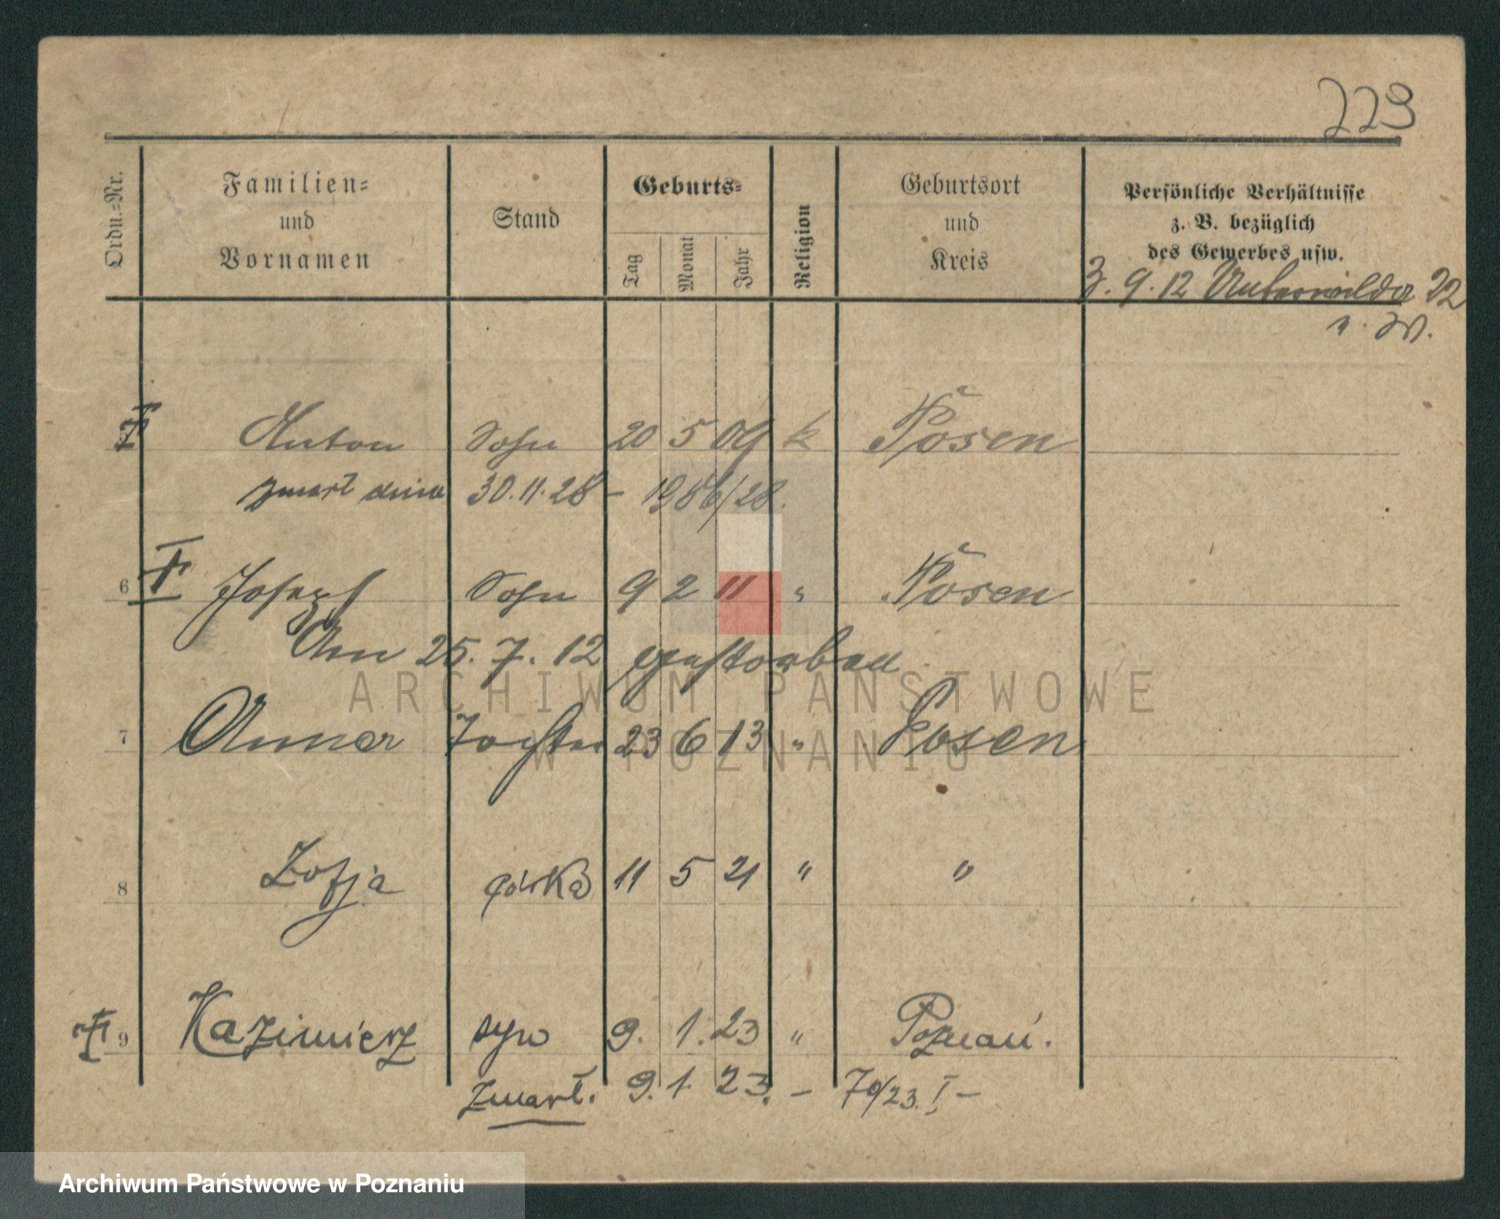 223
Ordn.-Nr.
Familien-
und
Vornamen
Stand
Geburts-
Tag
Monat
Jahr
Religion
Geburtsort
und
Kreis
Persönliche Verhältnisse
z. B. bezüglich
des Gewerbes usw.
3. 9. 12 22
Anton Sohn 20 5 09 k Posen
zmarł dnia 30.11.28 – 1986/28.
6 Josepf Sohn 9 2 11 " Posen
Am 25. 7. 12 gestorben
7 Anna Tochter 23 6 13 " Posen
8 Zofja córka 11 5 21 " "
9 Kazimierz syn 9. 1. 23 " Poznań.
zmarł. 9. 1. 23. – 70/23. I –
ARCHIWUM PAŃSTWOWE
W POZNANIU
Archiwum Państwowe w Poznaniu